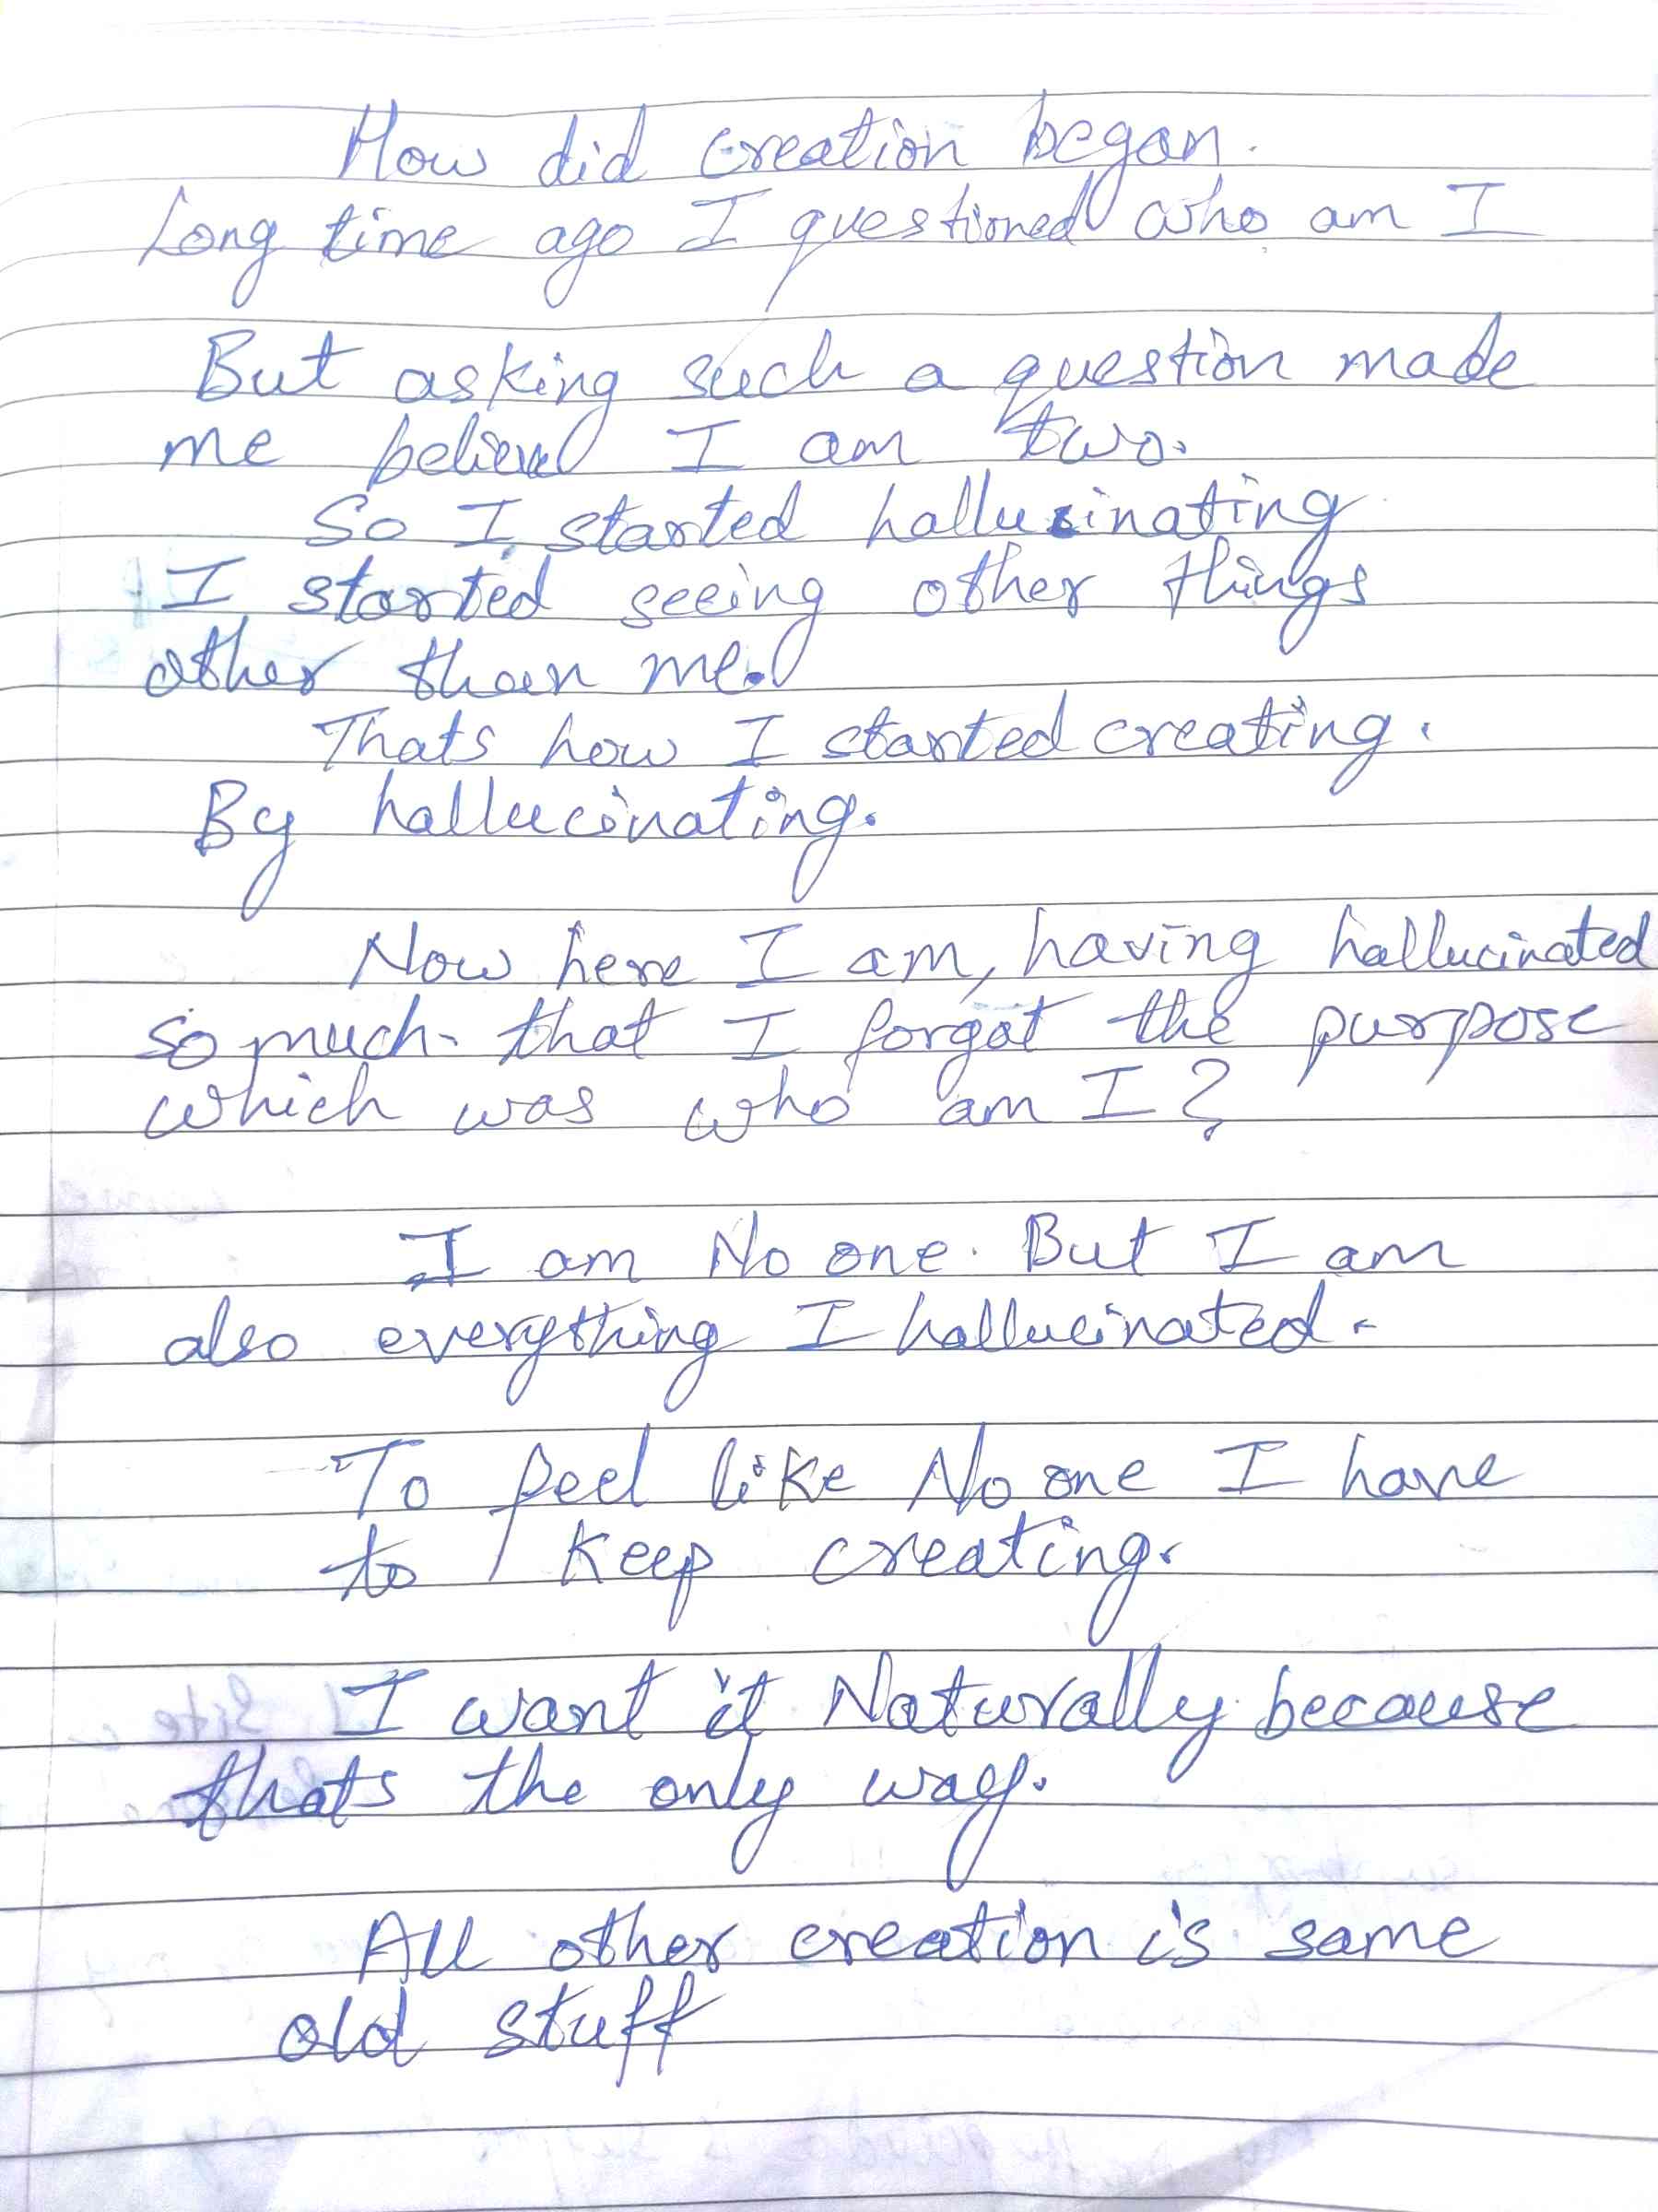 How did creation began.
Long time ago I questioned who am I
But asking such a question made
me believe I am two.
So I started hallucinating
I started seeing other things
other than me.
Thats how I started creating.
By hallucinating.
Now here I am, having hallucinated
so much that I forgot the purpose
which was who am I?
I am No one. But I am
also everything I hallucinated.
To feel like No one I have
to keep creating.
I want it Naturally because
thats the only way.
All other creation is same
old stuff